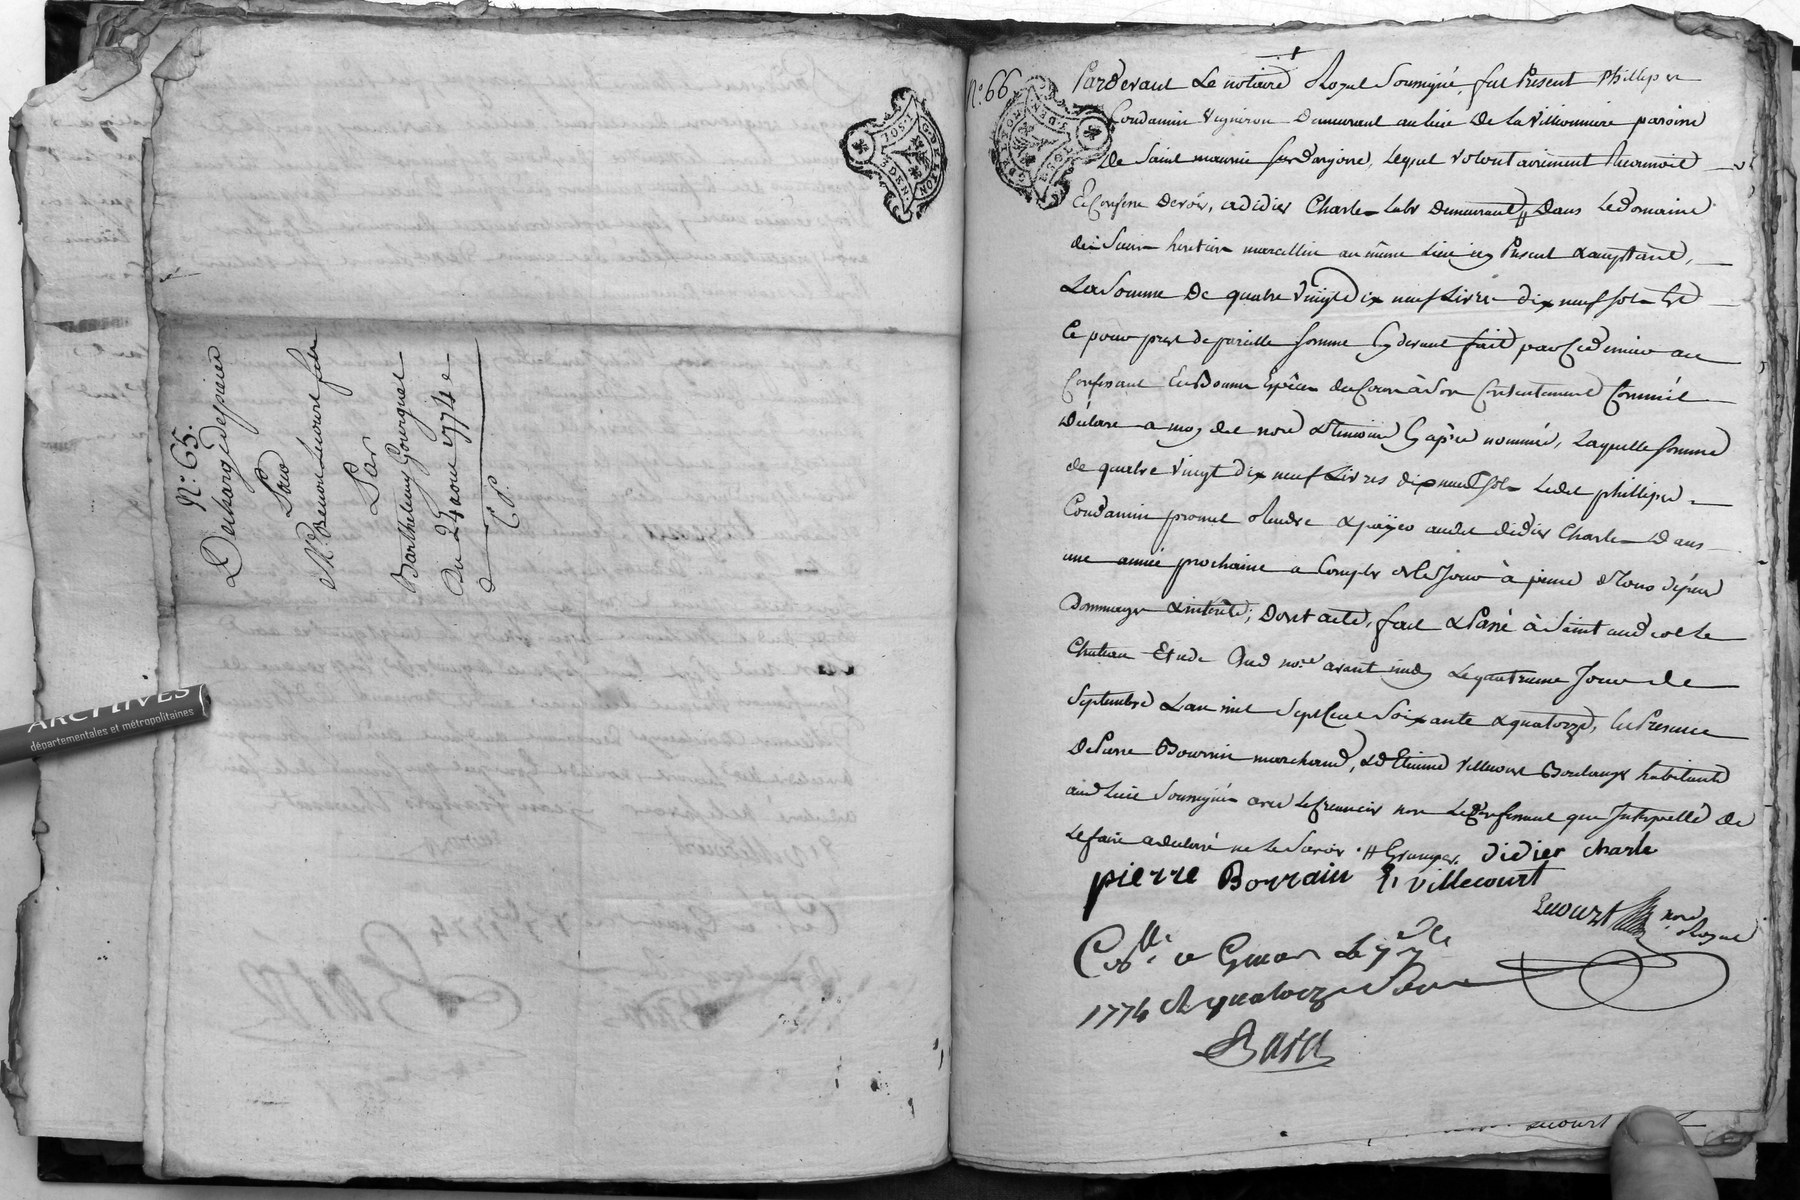 N.º 65.
Descharge de pieces
Pour
M.e Benoit Lecourt fer
Par
Barthelemy Gourguet
Du 24 aout 1774
C. P.
ARCHIVES
départementales et métropolitaines
GDE LYON
N.º 66
Pardevant Le notaire Royal Soussigné, fut Present Philliper
Condamin Vigneron Demeurant au lieu De la Villionniere paroisse
De Saint maurice sur dargoire, Lequel volontairement Reconnoit
Et Confesse devoir, a didier Charle Demeurant Dans Le domaine
des Sieurs marcellin au même Lieu icy Present & acceptant,
La Somme De quatre Vingt Dix neuf Livres dix neuf sols
Et pour prest de pareille somme Cy devant fait par Ce dernier au
Confessant En Bonnes Espèces du Cours à Son Contentement Comme il
Déclare a moy dit nore & temoins Cy après nommés, Laquelle somme
de quatre Vingt dix neuf Livres dix neuf sols Ledit phillipe
Condamin promet Rendre & payer audit didier Charle Dans
une année prochaine a Compter de Ce Jour à peine de tous dépens
Dommages & interets; Dont acte, fait & Passé à Saint andeol le
Chateau Etude Dud nore avant midy Le quatrieme Jour de
Septembre L'an mil Sept Cent Soixante & quatorze, En Presence
De Pierre Bourrin marchand, & D'Etienne Villecourt Boulanger habitants
aud Lieu Soussignés avec Le Creancier non Le Confessant que Interpellé de
Le faire a declaré ne Le Savoir. didier charle
pierre Borrain E Villecourt
Lecourt nore Royal
C.ollé a Givors Le 7 7bre
1774 R quatorze Sols